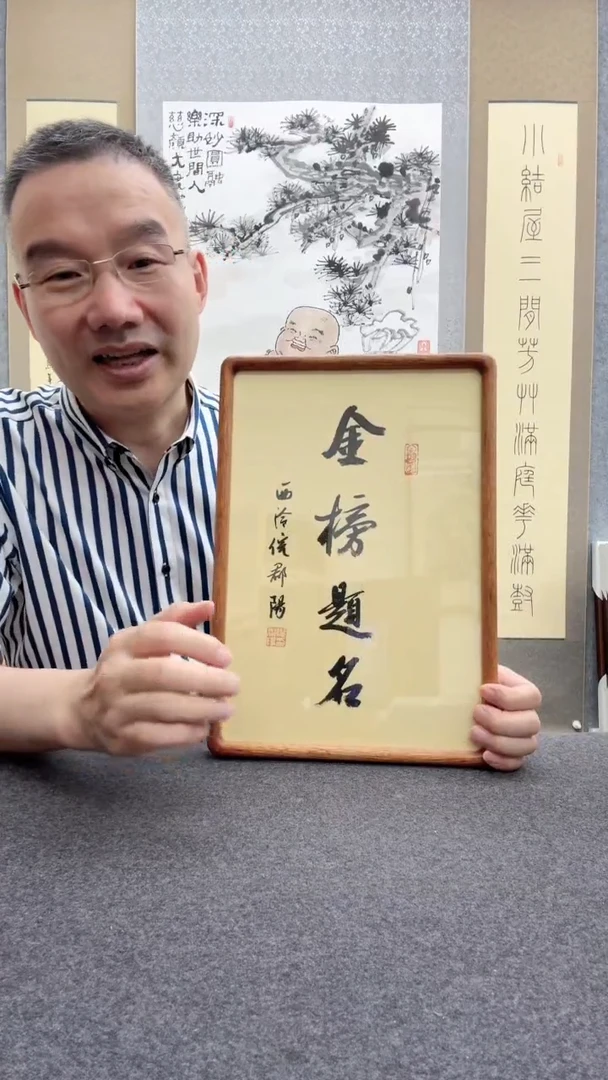 金榜題名
西泠倪郡陽
深妙圓融
樂助世間人
慈顏大
小結屋三間芳艸滿庭花滿